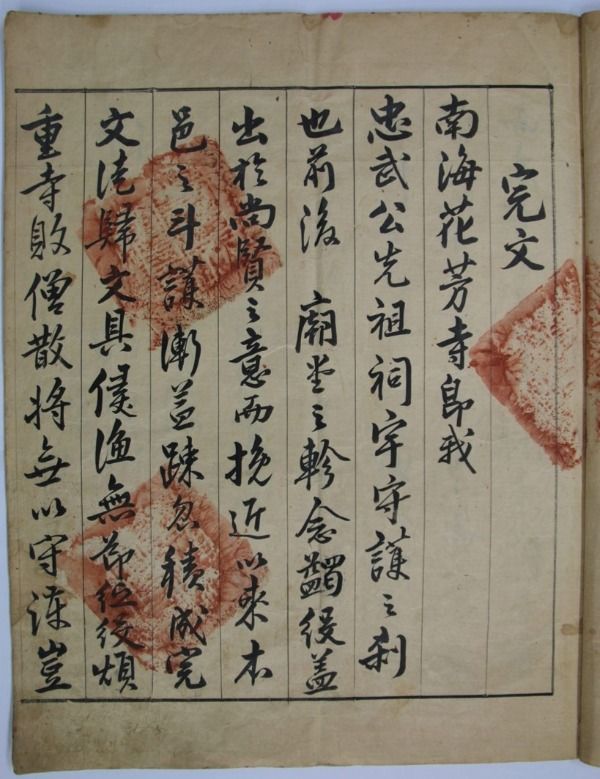 完文
南海花芳寺即我
忠武公先祖祠宇守護之刹
也前後 廟堂之軫念蠲役盖
出於尚賢之意而挽近以來本
邑之斗護漸益踈忽積成完
文徒歸文具侵漁無節征役煩
重寺敗僧散將無以守護豈